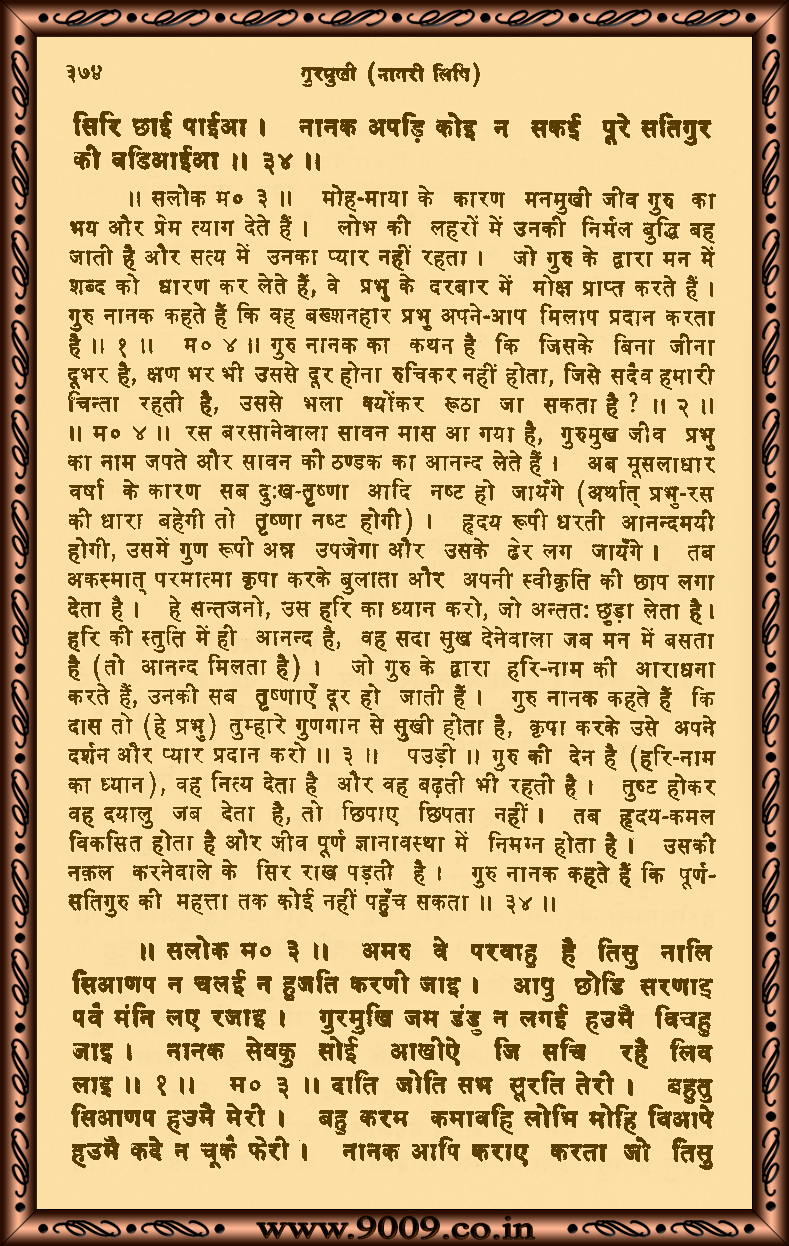 ३७४ गुरमुखी (नागरी लिपि)
सिरि छाई पाईआ । नानक अपड़ि कोइ न सकई पूरे सतिगुर
की वडिआईआ ॥ ३४ ॥
॥ सलोक म० ३ ॥ मोह-माया के कारण मनमुखी जीव गुरु का
भय और प्रेम त्याग देते हैं । लोभ की लहरों में उनकी निर्मल बुद्धि बह
जाती है और सत्य में उनका प्यार नहीं रहता । जो गुरु के द्वारा मन में
शब्द को धारण कर लेते हैं, वे प्रभु के दरबार में मोक्ष प्राप्त करते हैं ।
गुरु नानक कहते हैं कि वह बख़्शनहार प्रभु अपने-आप मिलाप प्रदान करता
है ॥ १ ॥ म० ४ ॥ गुरु नानक का कथन है कि जिसके बिना जीना
दूभर है, क्षण भर भी उससे दूर होना रुचिकर नहीं होता, जिसे सदैव हमारी
चिन्ता रहती है, उससे भला क्योंकर रूठा जा सकता है ? ॥ २ ॥
॥ म० ४ ॥ रस बरसानेवाला सावन मास आ गया है, गुरुमुख जीव प्रभु
का नाम जपते और सावन की ठण्डक का आनन्द लेते हैं । अब मूसलाधार
वर्षा के कारण सब दुःख-तृष्णा आदि नष्ट हो जायँगे (अर्थात् प्रभु-रस
की धारा बहेगी तो तृष्णा नष्ट होगी) । हृदय रूपी धरती आनन्दमयी
होगी, उसमें गुण रूपी अन्न उपजेगा और उसके ढेर लग जायँगे । तब
अकस्मात् परमात्मा कृपा करके बुलाता और अपनी स्वीकृति की छाप लगा
देता है । हे सन्तजनो, उस हरि का ध्यान करो, जो अन्ततः छुड़ा लेता है ।
हरि की स्तुति में ही आनन्द है, वह सदा सुख देनेवाला जब मन में बसता
है (तो आनन्द मिलता है) । जो गुरु के द्वारा हरि-नाम की आराधना
करते हैं, उनकी सब तृष्णाएँ दूर हो जाती हैं । गुरु नानक कहते हैं कि
दास तो (हे प्रभु) तुम्हारे गुणगान से सुखी होता है, कृपा करके उसे अपने
दर्शन और प्यार प्रदान करो ॥ ३ ॥ पउड़ी ॥ गुरु की देन है (हरि-नाम
का ध्यान), वह नित्य देता है और वह बढ़ती भी रहती है । तुष्ट होकर
वह दयालु जब देता है, तो छिपाए छिपता नहीं । तब हृदय-कमल
विकसित होता है और जीव पूर्ण ज्ञानावस्था में निमग्न होता है । उसकी
नक़ल करनेवाले के सिर राख पड़ती है । गुरु नानक कहते हैं कि पूर्ण-
सतिगुरु की महत्ता तक कोई नहीं पहुँच सकता ॥ ३४ ॥
॥ सलोक म० ३ ॥ अमरु वे परवाहु है तिसु नालि
सिआणप न चलई न हुजति करणी जाइ । आपु छोडि सरणाइ
पवै मंनि लए रजाइ । गुरमुखि जम डंडु न लगई हउमै विचहु
जाइ । नानक सेवकु सोई आखीऐ जि सचि रहै लिव
लाइ ॥ १ ॥ म० ३ ॥ दाति जोति सभ सूरति तेरी । बहुतु
सिआणप हउमै मेरी । बहु करम कमावहि लोभि मोहि विआपे
हउमै कदे न चूकै फेरी । नानक आपि कराए करता जो तिसु
www.9009.co.in